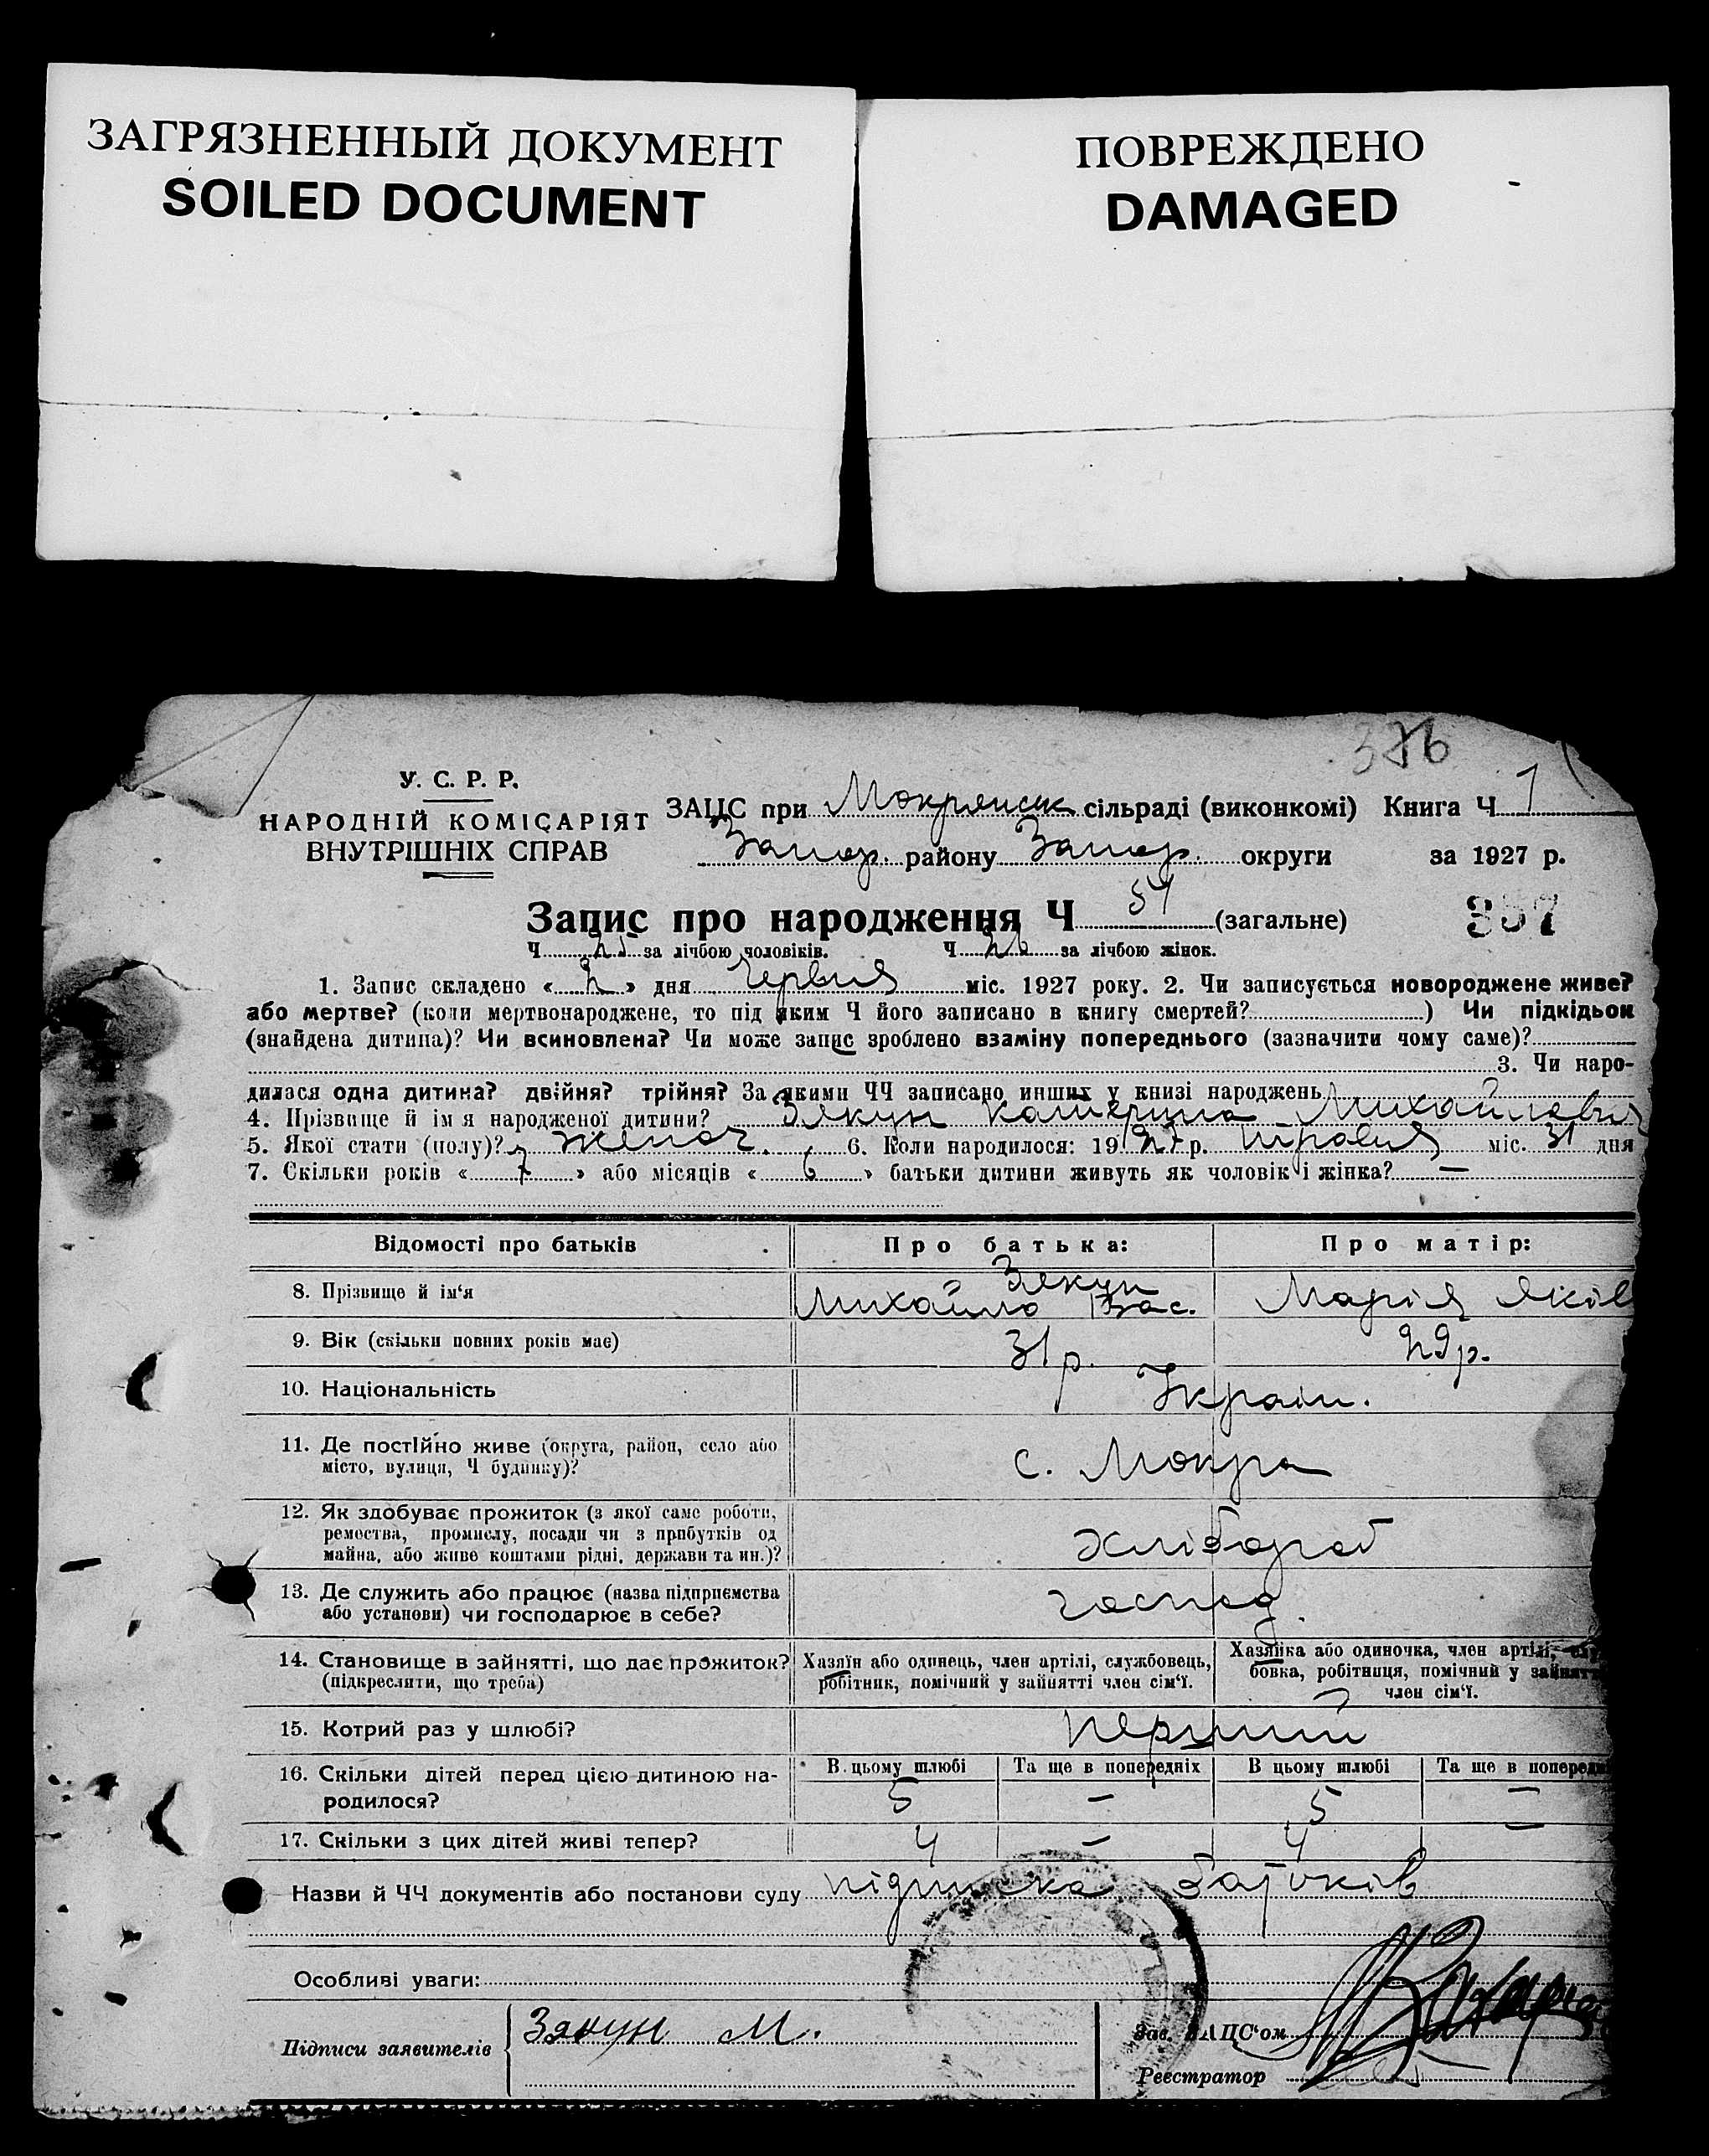 ЗАГРЯЗНЕННЫЙ ДОКУМЕНТ
SOILED DOCUMENT
ПОВРЕЖДЕНО
DAMAGED
376
У. С. Р. Р.
НАРОДНІЙ КОМІСАРІЯТ
ВНУТРІШНІХ СПРАВ
ЗАЦС при Мокрянськ сільраді (виконкомі) Книга Ч 1
Запор. району Запор. округи за 1927 р.
Запис про народження Ч 51 (загальне) 357
Ч 25 за лічбою чоловіків. Ч 26 за лічбою жінок.
1. Запис складено « 2 » дня Червня міс. 1927 року. 2. Чи записується новороджене живе?
або мертве? (коли мертвонароджене, то під яким Ч його записано в книгу смертей? ) Чи підкідьок
(знайдена дитина)? Чи всиновлена? Чи може запис зроблено взаміну попереднього (зазначити чому саме)?
3. Чи наро-
дилася одна дитина? двійня? трійня? За якими ЧЧ записано инших у книзі народжень
4. Прізвище й ім я народженої дитини? Зякун Катерина Михайловн
5. Якої стати (полу)? жіноч. 6. Коли народилося: 1927 р. травня міс. 31 дня
7. Скільки років « 7 » або місяців « 6 » батьки дитини живуть як чоловік і жінка? —
Відомості про батьків Про батька: Про матір:
8. Прізвище й ім‘я Зякун Михайло Вас. Марія Яків
9. Вік (скільки повних років має) 31 р. 29 р.
10. Національність Україн.
11. Де постійно живе (округа, район, село або
місто, вулиця, Ч будинку)? с. Мокра
12. Як здобуває прожиток (з якої саме роботи,
ремества, промислу, посади чи з прибутків од
майна, або живе коштами рідні, держави та ин.)? Хлібороб
13. Де служить або працює (назва підприємства
або установи) чи господарює в себе? господ.
14. Становище в зайнятті, що дає прожиток?
(підкреслити, що треба)
Хазяїн або одинець, член артілі, службовець,
робітник, помічний у зайнятті член сім‘ї.
Хазяйка або одиночка, член артілі, слу
бовка, робітниця, помічний у зайнятт
член сім‘ї.
15. Котрий раз у шлюбі? перший
16. Скільки дітей перед цією дитиною на-
родилося?
В цьому шлюбі Та ще в попередніх В цьому шлюбі Та ще в поперед
5 — 5 —
17. Скільки з цих дітей живі тепер? 4 — 4 —
Назви й ЧЧ документів або постанови суду підписка батьків
Особливі уваги:
Підписи заявителів Зякун М.
Зав. ЗАЦС‘ом
Реєстратор